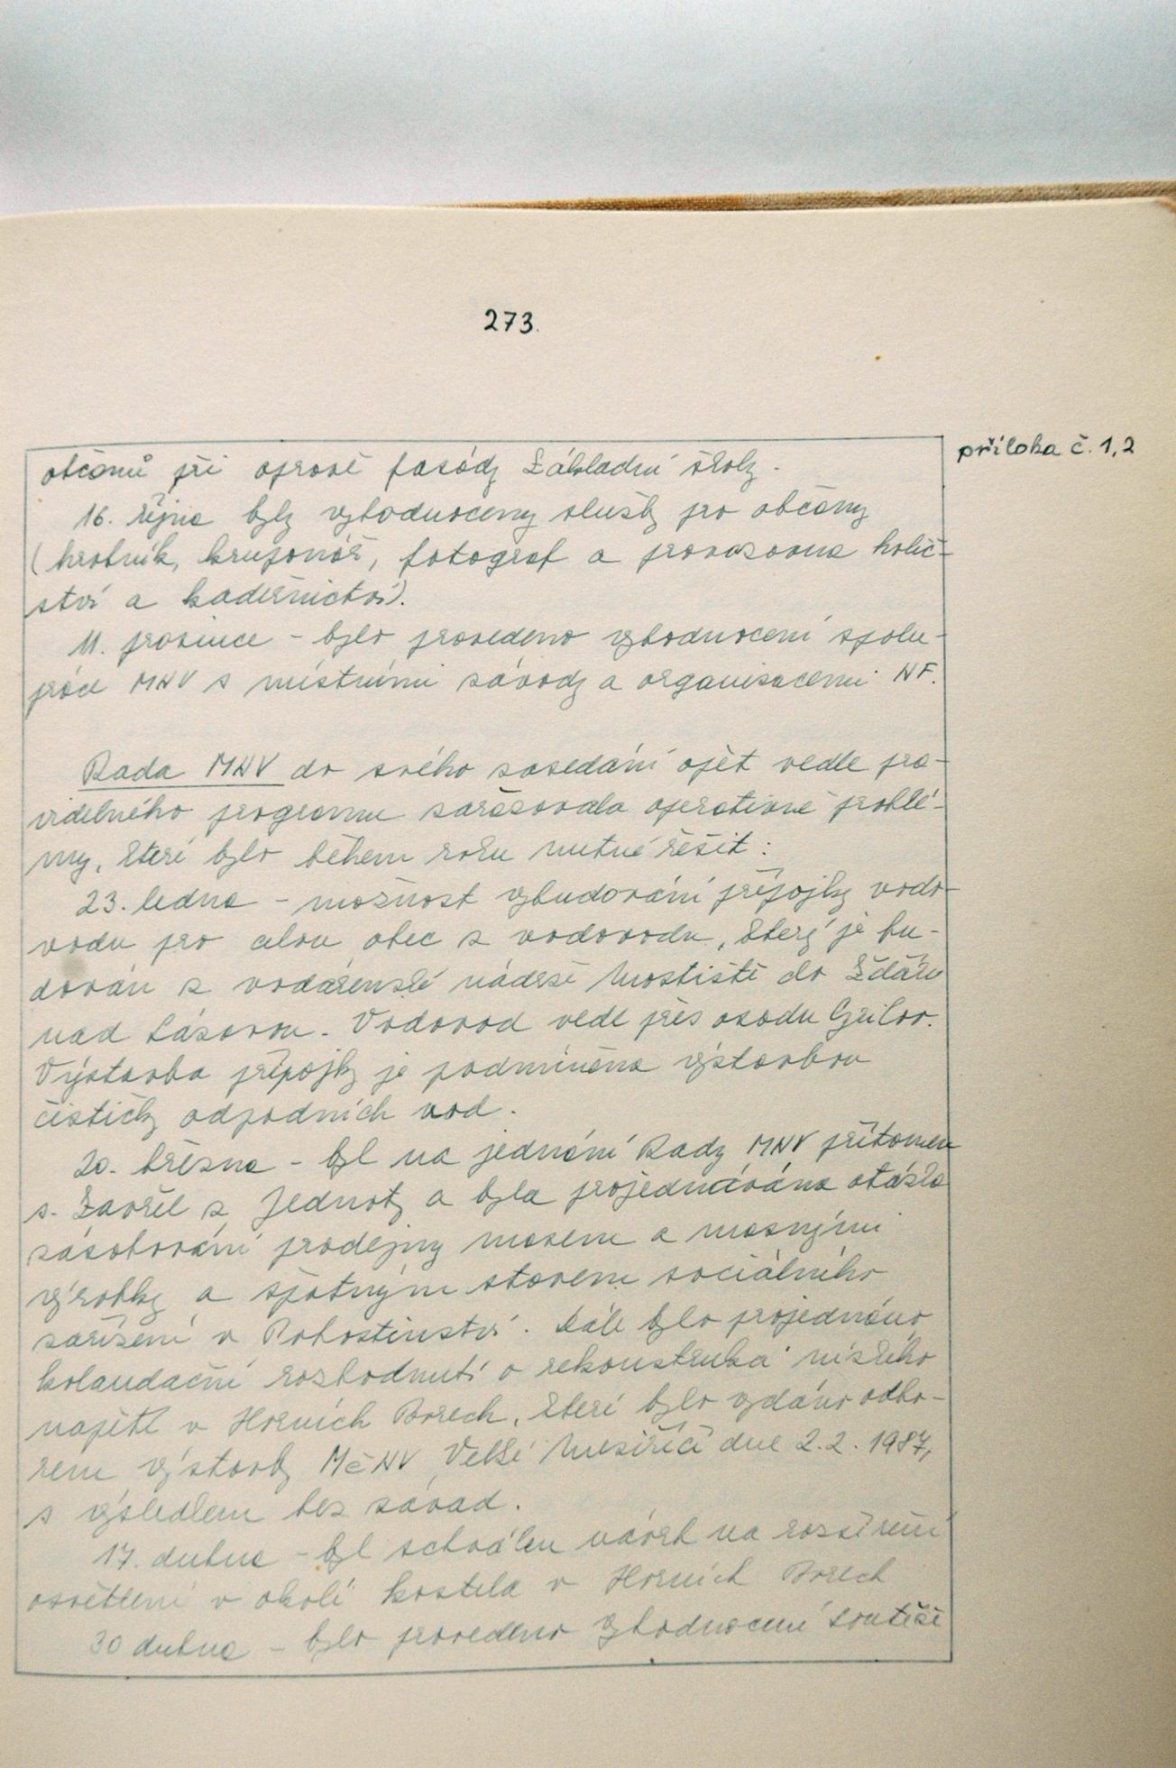 273.
příloha č. 1,2
občanů při opravě fasády Základní školy.
16. října byly vyhodnoceny služby pro občany
(hrobník, kruponář, fotograf a provozovna holič-
ství a kadeřnictví).
11. prosince - bylo provedeno vyhodnocení spolu-
práce MNV s místními závody a organizacemi NF.
Rada MNV do svého zasedání opět vedle pra-
videlného programu zařazovala operativně problé-
my, které bylo během roku nutné řešit:
23. ledna - možnost vybudování přípojky vodo-
vodu pro celou obec z vodovodu, který je bu-
dován z vodárenské nádrže Mostiště do Žďáru
nad Sázavou. Vodovod vede přes osadu Cyrilov.
Výstavba přípojky je podmíněna výstavbou
čističky odpadních vod.
20. března - byl na jednání Rady MNV přítomen
s. Zavřel z Jednoty a byla projednávána otázka
zásobování prodejny masem a masnými
výrobky a špatným stavem sociálního
zařízení v Pohostinství. Dále bylo projednáno
kolaudační rozhodnutí o rekonstrukci nízkého
napětí v Horních Borech, které bylo vydáno odbo-
rem výstavby MěNV Velké Meziříčí dne 2.2. 1987,
s výsledkem bez závad.
17. dubna - byl schválen návrh na rozšíření
osvětlení v okolí kostela v Horních Borech
30 dubna - bylo provedeno vyhodnocení soutěže